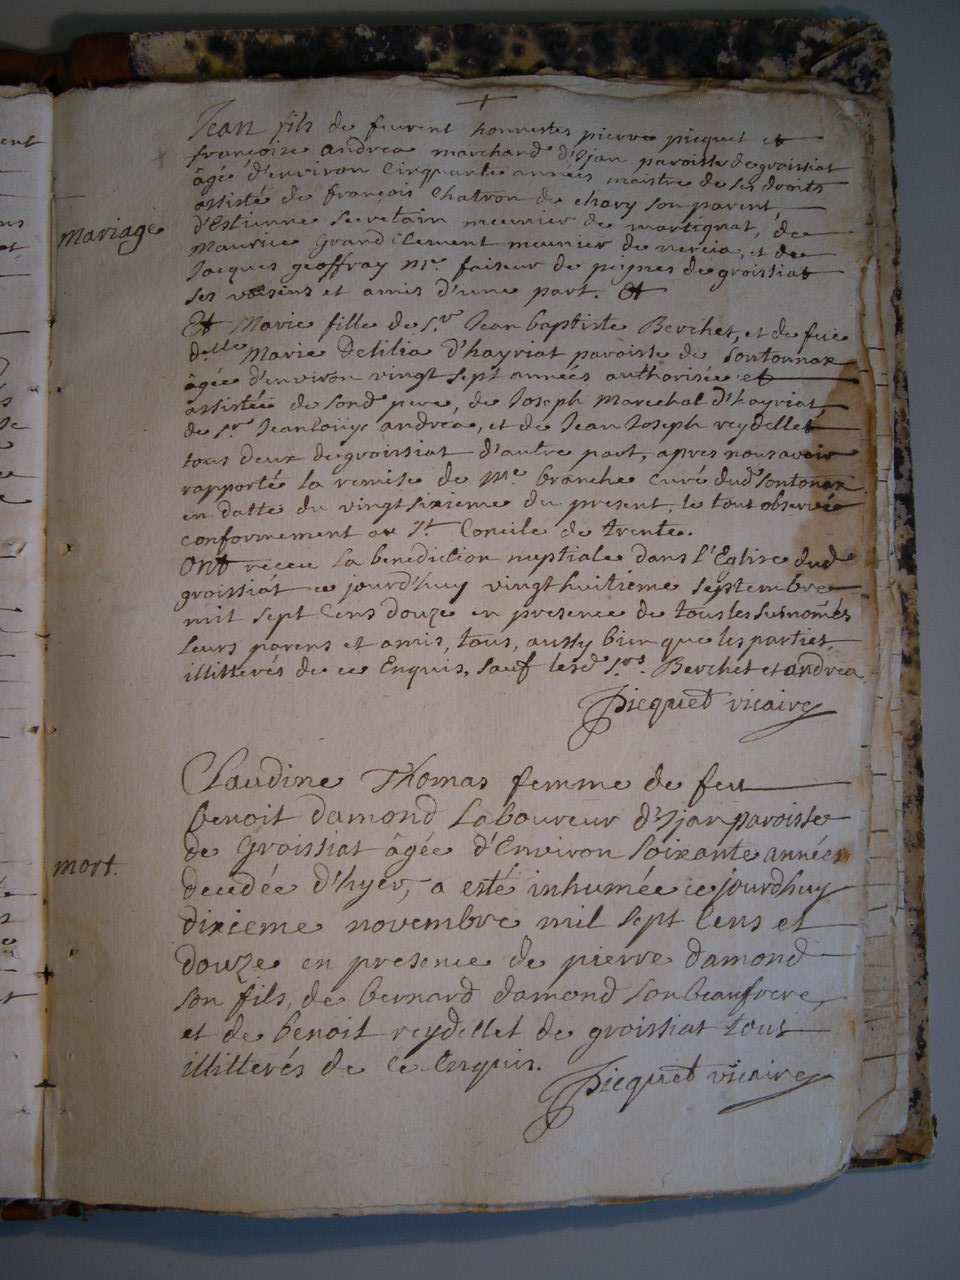 +
Jean fils de feurent honnestes pierre picquet et
françoise andrea marchand d'Ijan paroisse de groissiat
âgée d'environ Cinquante années maistre de ses droits
assisté de françois Chatron de chary son parent,
mariage
d'Estienne secretain meunier de martignat, de
maurice grand clement meunier de nercia, et de
Jacques geoffray me. faiseur de peignes de groissiat
ses voisins et amis d'une part. Et
Et Marie fille de sr. Jean baptiste Berchet, et de feüe
delle Marie Delilia d'hayriat paroisse de sontonnax
âgée d'environ vingt sept années authorisée et
assistée de sond. pere, de Joseph Marechal d'hayriat,
de sr. Jean louÿs andrea, et de Jean Joseph reydellet
tous deux de groissiat d'autre part, apres nous avoir
rapporté la remise de me. branche curé dud. sontonax
en datte du vingt sixieme du present, le tout observé
conformement au st. Concile de trente.
Ont receu la benediction nuptiale dans l'Eglise dud.
groissiat ce jourd'huy vingt huitieme septembre
mil sept Cens douze en presence de tous les susnomés
leurs parens et amis, tous, aussy bien que les parties
illitterés de ce Enquis, sauf lesd. srs. Berchet et andrea
Picquet vicaire
Claudine Thomas femme de feu
benoit damond Laboureur d'Ijan paroisse
de Groissiat âgée d'Environ soixante années
mort.
decedée d'hyer, a esté inhumée ce jourdhuy
dixieme novembre mil sept Cens et
douze en presence de pierre damond
son fils, de bernard damond son beaufrere,
et de benoit reydellet de groissiat tous
illitterés de ce Enquis.
Picquet vicaire